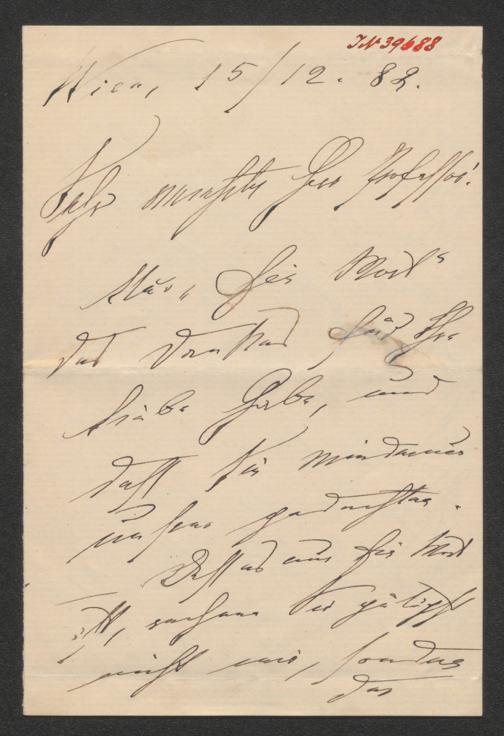 IN 39688
Wien, 15/12. 82.
Sehr verehrter Herr Professor!
Nur ein Wort
des Dankes für Ihre
liebe Gabe, und
daß Sie
unser gedachten.
Daß es nur ein Wort
ist, Sie gütigst
nicht mir, sondern
der